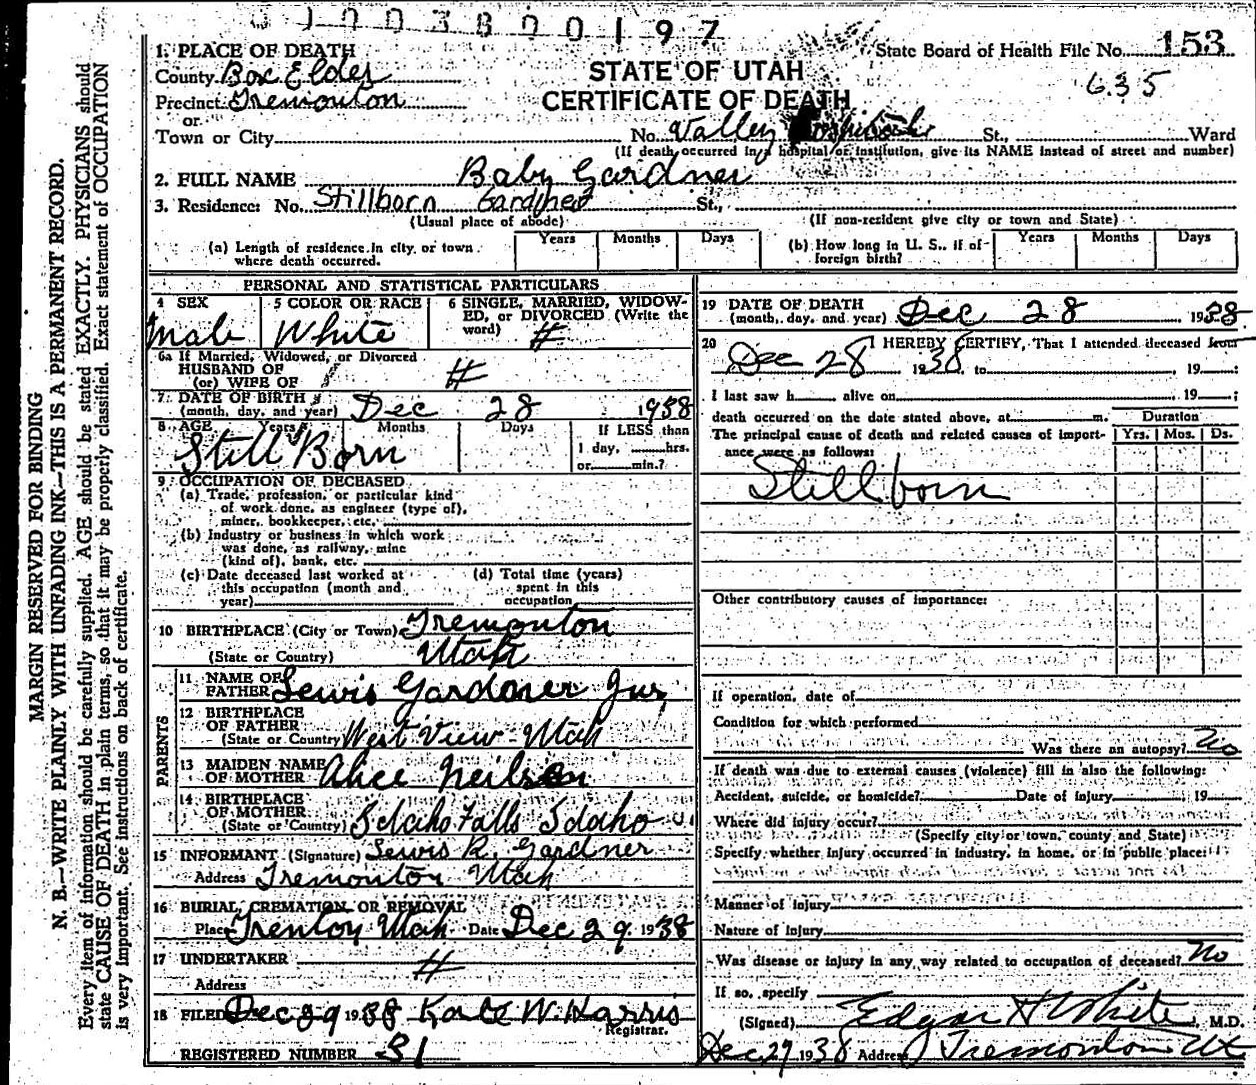 1003800197
State Board of Health File No. 153
635
STATE OF UTAH
CERTIFICATE OF DEATH
1. PLACE OF DEATH
County Box Elder
Precinct Tremonton
or
Town or City No. Valley St., Ward
(If death occurred in a hospital or institution, give its NAME instead of street and number)
2. FULL NAME Baby Gardner
3. Residence: No. Stillborn Gardner St.,
(Usual place of abode) (If non-resident give city or town and State)
(a) Length of residence in city or town where death occurred. Years Months Days
(b) How long in U. S., if of foreign birth? Years Months Days
PERSONAL AND STATISTICAL PARTICULARS
4 SEX Male
5 COLOR OR RACE White
6 SINGLE, MARRIED, WIDOWED, or DIVORCED (Write the word) #
6a If Married, Widowed, or Divorced
HUSBAND OF
(or) WIFE OF #
7 DATE OF BIRTH
(month, day, and year) Dec 28 1938
8 AGE Years Months Days If LESS than
1 day, hrs.
or min.?
Still Born
9 OCCUPATION OF DECEASED
(a) Trade, profession, or particular kind
of work done, as engineer (type of),
miner, bookkeeper, etc.
(b) Industry or business in which work
was done, as railway, mine
(kind of), bank, etc.
(c) Date deceased last worked at
this occupation (month and
year)
(d) Total time (years)
spent in this
occupation
10 BIRTHPLACE (City or Town) Tremonton
(State or Country) Utah
PARENTS
11 NAME OF
FATHER Lewis Gardner Jur
12 BIRTHPLACE
OF FATHER
(State or Country) West View Utah
13 MAIDEN NAME
OF MOTHER Alice Neilson
14 BIRTHPLACE
OF MOTHER
(State or Country) Idaho Falls Idaho
15 INFORMANT (Signature) Lewis R. Gardner
Address Tremonton Utah
16 BURIAL, CREMATION, OR REMOVAL
Place Trenton Utah Date Dec 29 1938
17 UNDERTAKER #
Address
18 FILED Dec 29 1938 Kate W. Harris
Registrar.
REGISTERED NUMBER 31
19 DATE OF DEATH
(month, day, and year) Dec 28 1938
20 I HEREBY CERTIFY, That I attended deceased from
Dec 28 1938 to , 19 :
I last saw h alive on , 19 ;
death occurred on the date stated above, at m. Duration
The principal cause of death and related causes of importance were as follows: Yrs. Mos. Ds.
Stillborn
Other contributory causes of importance:
If operation, date of
Condition for which performed
Was there an autopsy? No
If death was due to external causes (violence) fill in also the following:
Accident, suicide, or homicide? Date of injury , 19
Where did injury occur?
(Specify city or town, county and State)
Specify whether injury occurred in industry, in home, or in public place:
Manner of injury
Nature of injury
Was disease or injury in any way related to occupation of deceased? No
If so, specify
(Signed) Edgar H White, M.D.
Dec 29 1938 Address Tremonton Ut
MARGIN RESERVED FOR BINDING
N. B.—WRITE PLAINLY WITH UNFADING INK—THIS IS A PERMANENT RECORD.
Every item of information should be carefully supplied. AGE should be stated EXACTLY. PHYSICIANS should
state CAUSE OF DEATH in plain terms, so that it may be properly classified. Exact statement of OCCUPATION
is very important. See instructions on back of certificate.